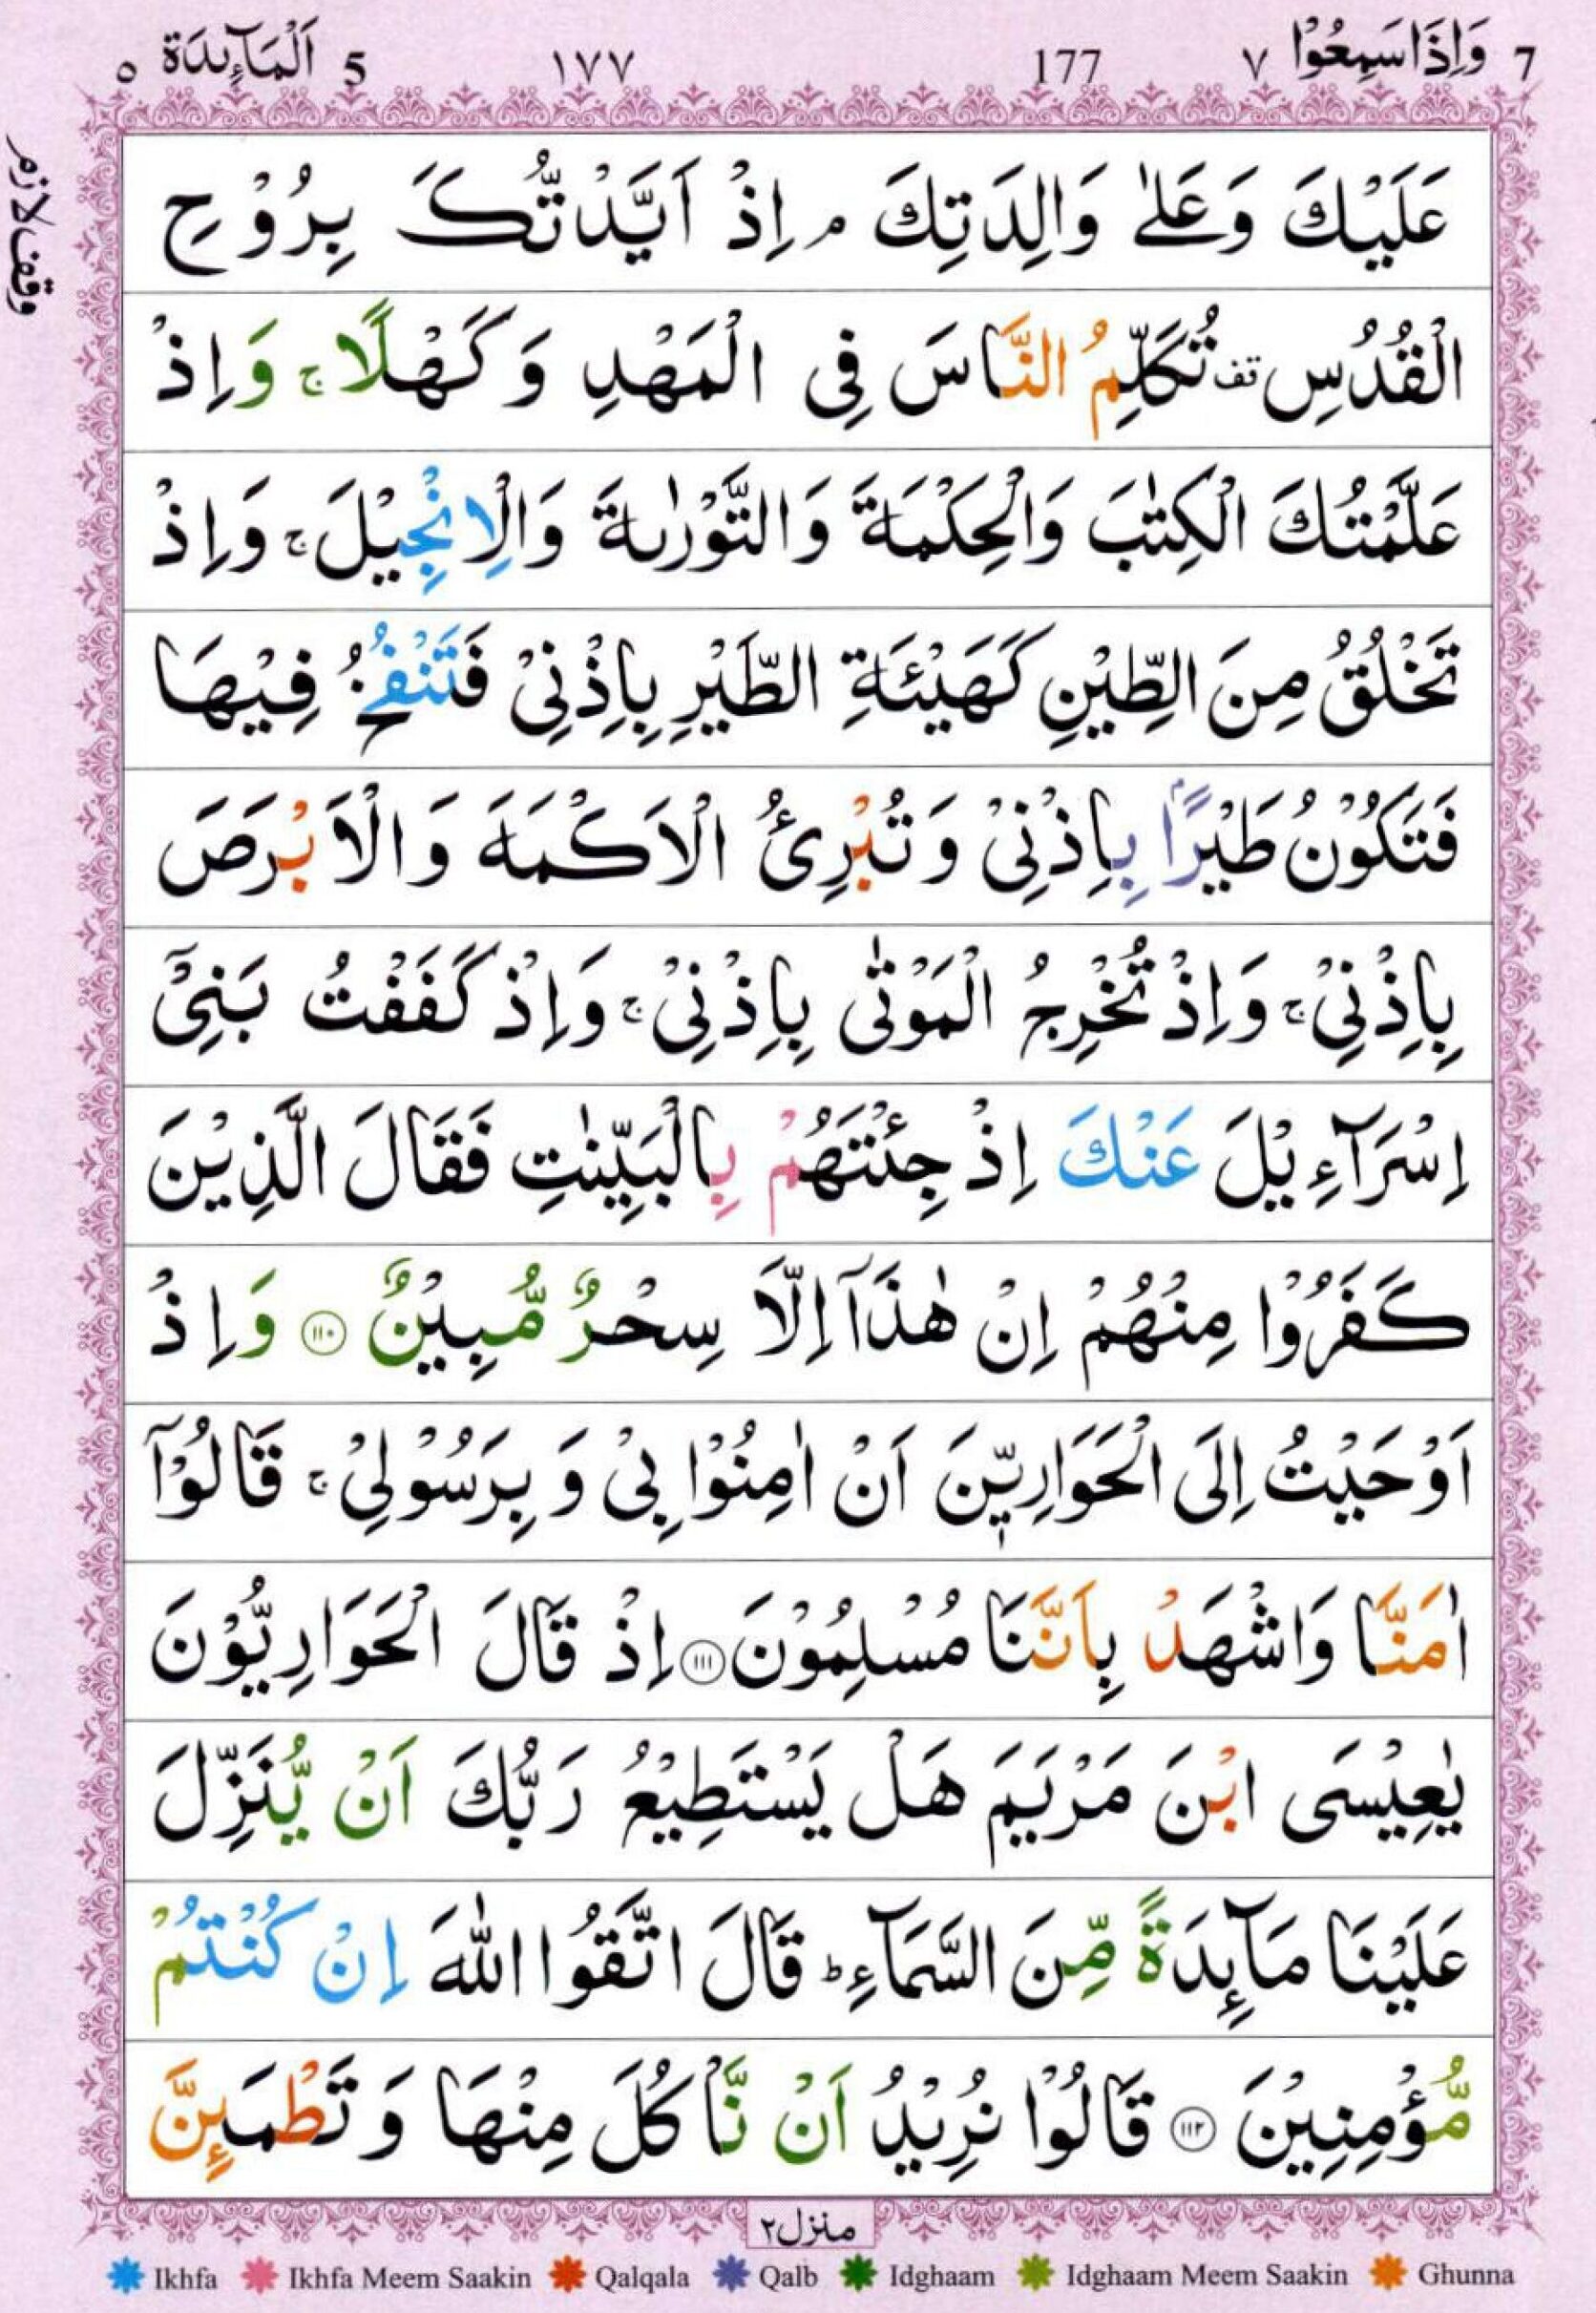 7 وَاِذَا سَمِعُوْا ٧ 177 ١٧٧ 5 اَلْمَآئِدَة ٥
وقف لازم
عَلَيْكَ وَعَلٰى وَالِدَتِكَ ۘ اِذْ اَيَّدْتُّكَ بِرُوْحِ
الْقُدُسِ تف تُكَلِّمُ النَّاسَ فِى الْمَهْدِ وَكَهْلًا ۚ وَاِذْ
عَلَّمْتُكَ الْكِتٰبَ وَالْحِكْمَةَ وَالتَّوْرٰىةَ وَالْاِنْجِيْلَ ۚ وَاِذْ
تَخْلُقُ مِنَ الطِّيْنِ كَهَيْئَةِ الطَّيْرِ بِاِذْنِىْ فَتَنْفُخُ فِيْهَا
فَتَكُوْنُ طَيْرًاۢ بِاِذْنِىْ وَتُبْرِئُ الْاَكْمَهَ وَالْاَبْرَصَ
بِاِذْنِىْ ۚ وَاِذْ تُخْرِجُ الْمَوْتٰى بِاِذْنِىْ ۚ وَاِذْ كَفَفْتُ بَنِىْٓ
اِسْرَآءِيْلَ عَنْكَ اِذْ جِئْتَهُمْ بِالْبَيِّنٰتِ فَقَالَ الَّذِيْنَ
كَفَرُوْا مِنْهُمْ اِنْ هٰذَآ اِلَّا سِحْرٌ مُّبِيْنٌ ۝١١٠ وَاِذْ
اَوْحَيْتُ اِلَى الْحَوَارِيّٖنَ اَنْ اٰمِنُوْا بِىْ وَبِرَسُوْلِىْ ۚ قَالُوْٓا
اٰمَنَّا وَاشْهَدْ بِاَنَّنَا مُسْلِمُوْنَ ۝١١١ اِذْ قَالَ الْحَوَارِيُّوْنَ
يٰعِيْسَى ابْنَ مَرْيَمَ هَلْ يَسْتَطِيْعُ رَبُّكَ اَنْ يُّنَزِّلَ
عَلَيْنَا مَآئِدَةً مِّنَ السَّمَآءِ ؕ قَالَ اتَّقُوا اللّٰهَ اِنْ كُنْتُمْ
مُّؤْمِنِيْنَ ۝١١٢ قَالُوْا نُرِيْدُ اَنْ نَّاْكُلَ مِنْهَا وَتَطْمَئِنَّ
منزل٢
Ikhfa Ikhfa Meem Saakin Qalqala Qalb Idghaam Idghaam Meem Saakin Ghunna